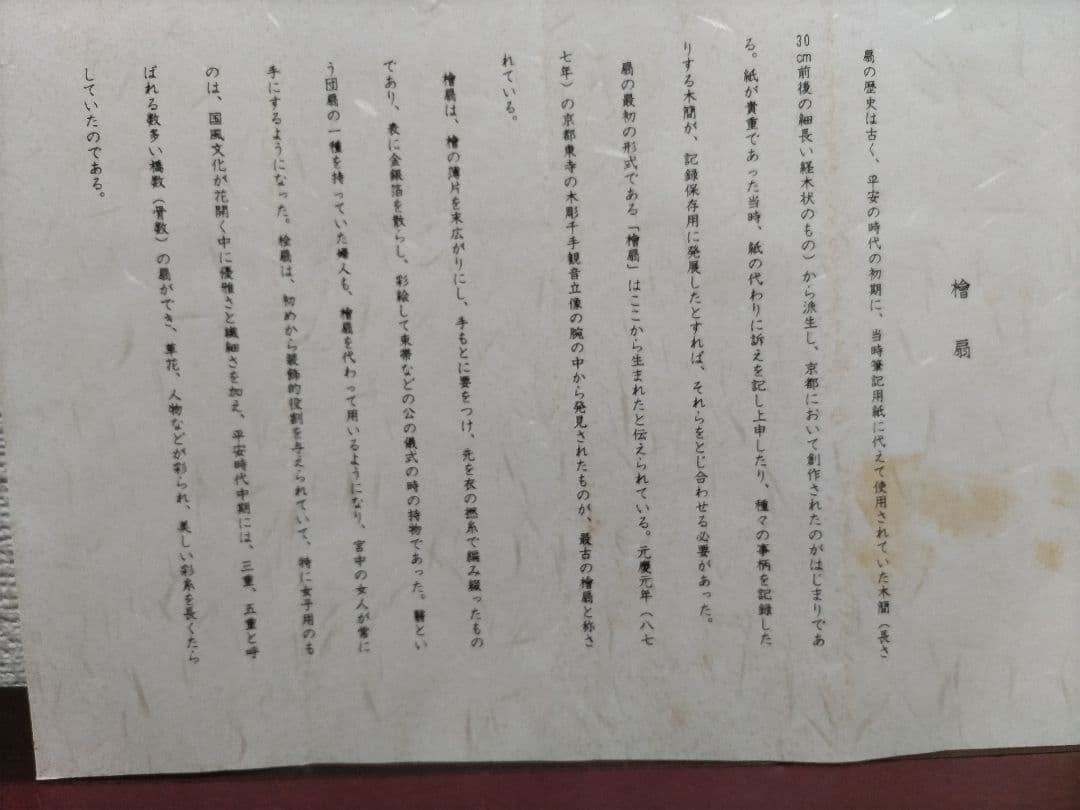 檜扇
扇の歴史は古く、平安の時代の初期に、当時筆記用紙に代えて使用されていた木簡（長さ
30㎝前後の細長い経木状のもの）から派生し、京都において創作されたのがはじまりであ
る。紙が貴重であった当時、紙の代わりに訴えを記し上申したり、種々の事柄を記録した
りする木簡が、記録保存用に発展したとすれば、それらをとじ合わせる必要があった。
扇の最初の形式である「檜扇」はここから生まれたと伝えられている。元慶元年（八七
七年）の京都東寺の木彫千手観音立像の腕の中から発見されたものが、最古の檜扇と称さ
れている。
檜扇は、檜の薄片を末広がりにし、手もとに要をつけ、先を衣の撚糸で編み綴ったもの
であり、表に金銀箔を散らし、彩絵して束帯などの公の儀式の時の持物であった。翳とい
う団扇の一種を持っていた婦人も、檜扇を代わって用いるようになり、宮中の女人が常に
手にするようになった。桧扇は、初めから装飾的役割を与えられていて、特に女子用のも
のは、国風文化が花開く中に優雅さと繊細さを加え、平安時代中期には、三重、五重と呼
ばれる数多い橋数（骨数）の扇ができ、草花、人物などが彩られ、美しい彩糸を長くたら
していたのである。